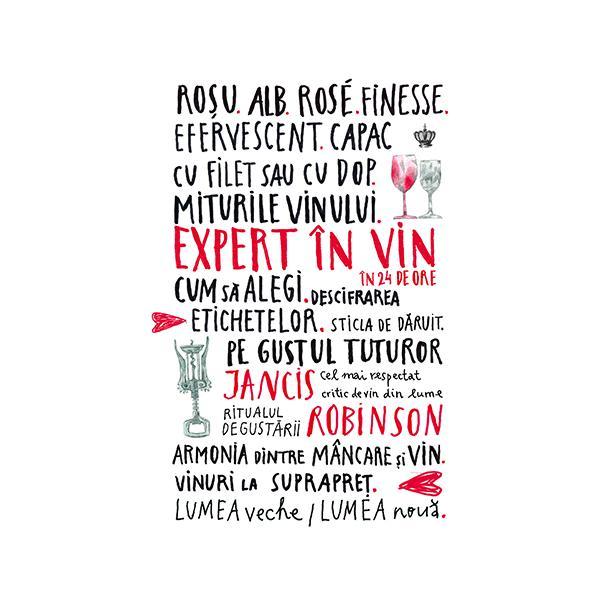 ROȘU. ALB. ROSÉ. FINESSE.
EFERVESCENT. CAPAC
CU FILET SAU CU DOP.
MITURILE VINULUI.
EXPERT ÎN VIN
ÎN 24 DE ORE
CUM SĂ ALEGI. DESCIFRAREA
ETICHETELOR. STICLA DE DĂRUIT.
PE GUSTUL TUTUROR
JANCIS cel mai respectat
critic de vin din lume
RITUALUL
DEGUSTĂRII ROBINSON
ARMONIA DINTRE MÂNCARE ȘI VIN.
VINURI LA SUPRAPREȚ.
LUMEA veche / LUMEA nouă.